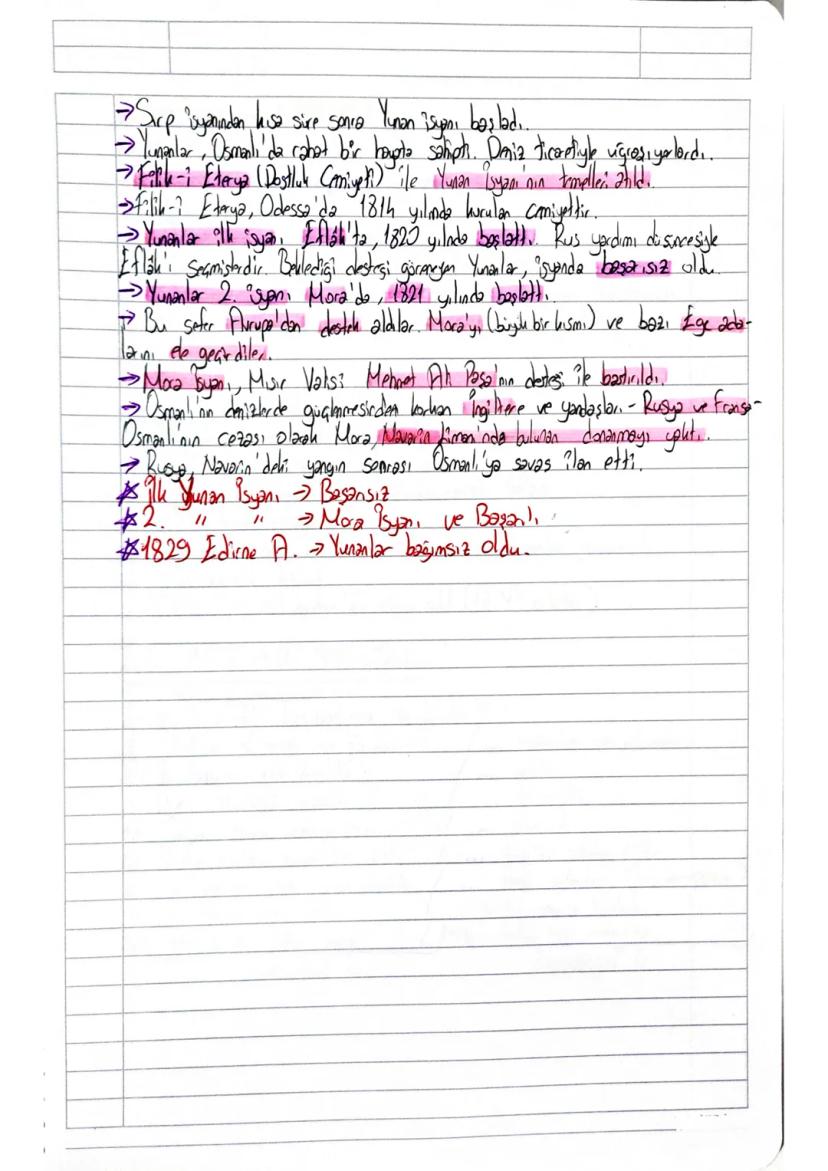 → Sırp isyanından kısa süre sonra Yunan isyanı başladı.
→ Yunanlar, Osmanlı'da rahat bir hayata sahipti. Deniz ticaretiyle uğraşıyorlardı.
→ Filik-i Eterya (Dostluk Cemiyeti) ile Yunan İsyanı'nın temelleri atıldı.
→ Filik-i Eterya, Odessa'da 1814 yılında kurulan cemiyettir.
→ Yunanlar ilk isyanı Eflâk'ta, 1820 yılında başlattı. Rus yardımı düşüncesiyle
Eflâk'ı seçmişlerdir. Beklediği desteği göremeyen Yunanlar, isyanda başarısız oldu.
→ Yunanlar 2. isyanı Mora'da, 1821 yılında başlattı.
→ Bu sefer Avrupa'dan destek aldılar. Mora'yı (büyük bir kısmı) ve bazı Ege ada-
larını ele geçirdiler.
→ Mora İsyanı, Mısır Valisi Mehmet Ali Paşa'nın desteği ile bastırıldı.
→ Osmanlı'nın denizlerde güçlenmesinden korkan İngiltere ve yandaşları - Rusya ve Fransa -
Osmanlı'nın cezası olarak Mora, Navarin Limanı'nda bulunan donanmayı yaktı.
→ Rusya, Navarin'deki yangın sonrası Osmanlı'ya savaş ilan etti.
* İlk Yunan İsyanı → Başarısız
* 2. " " → Mora İsyanı ve Başarılı
* 1829 Edirne A. → Yunanlar bağımsız oldu.